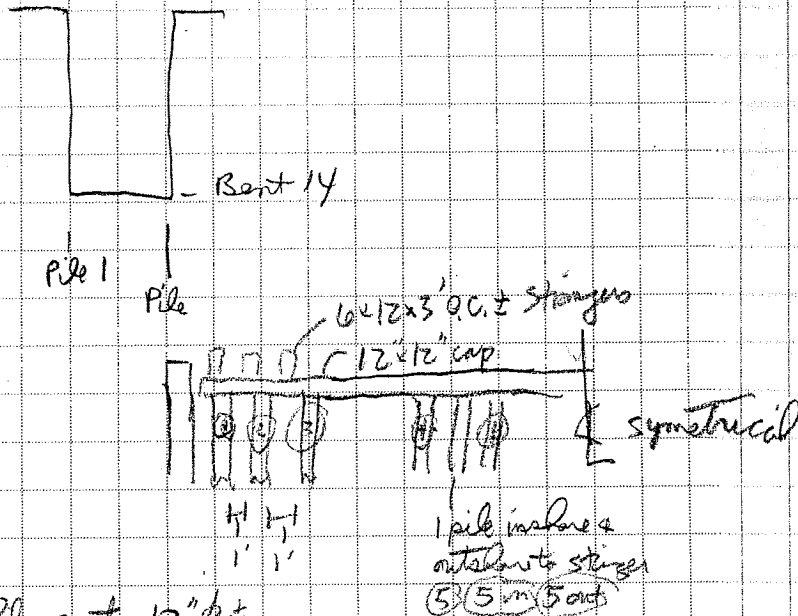 - Bent 14
Pile 1
Pile
6x12x3' O.C. ± Stringers
12"x12" cap
1 2 3 4
symetrical
1' 1'
1 pile inshore &
outshore to stringer
5 5 in 5 out
12"ϕ±